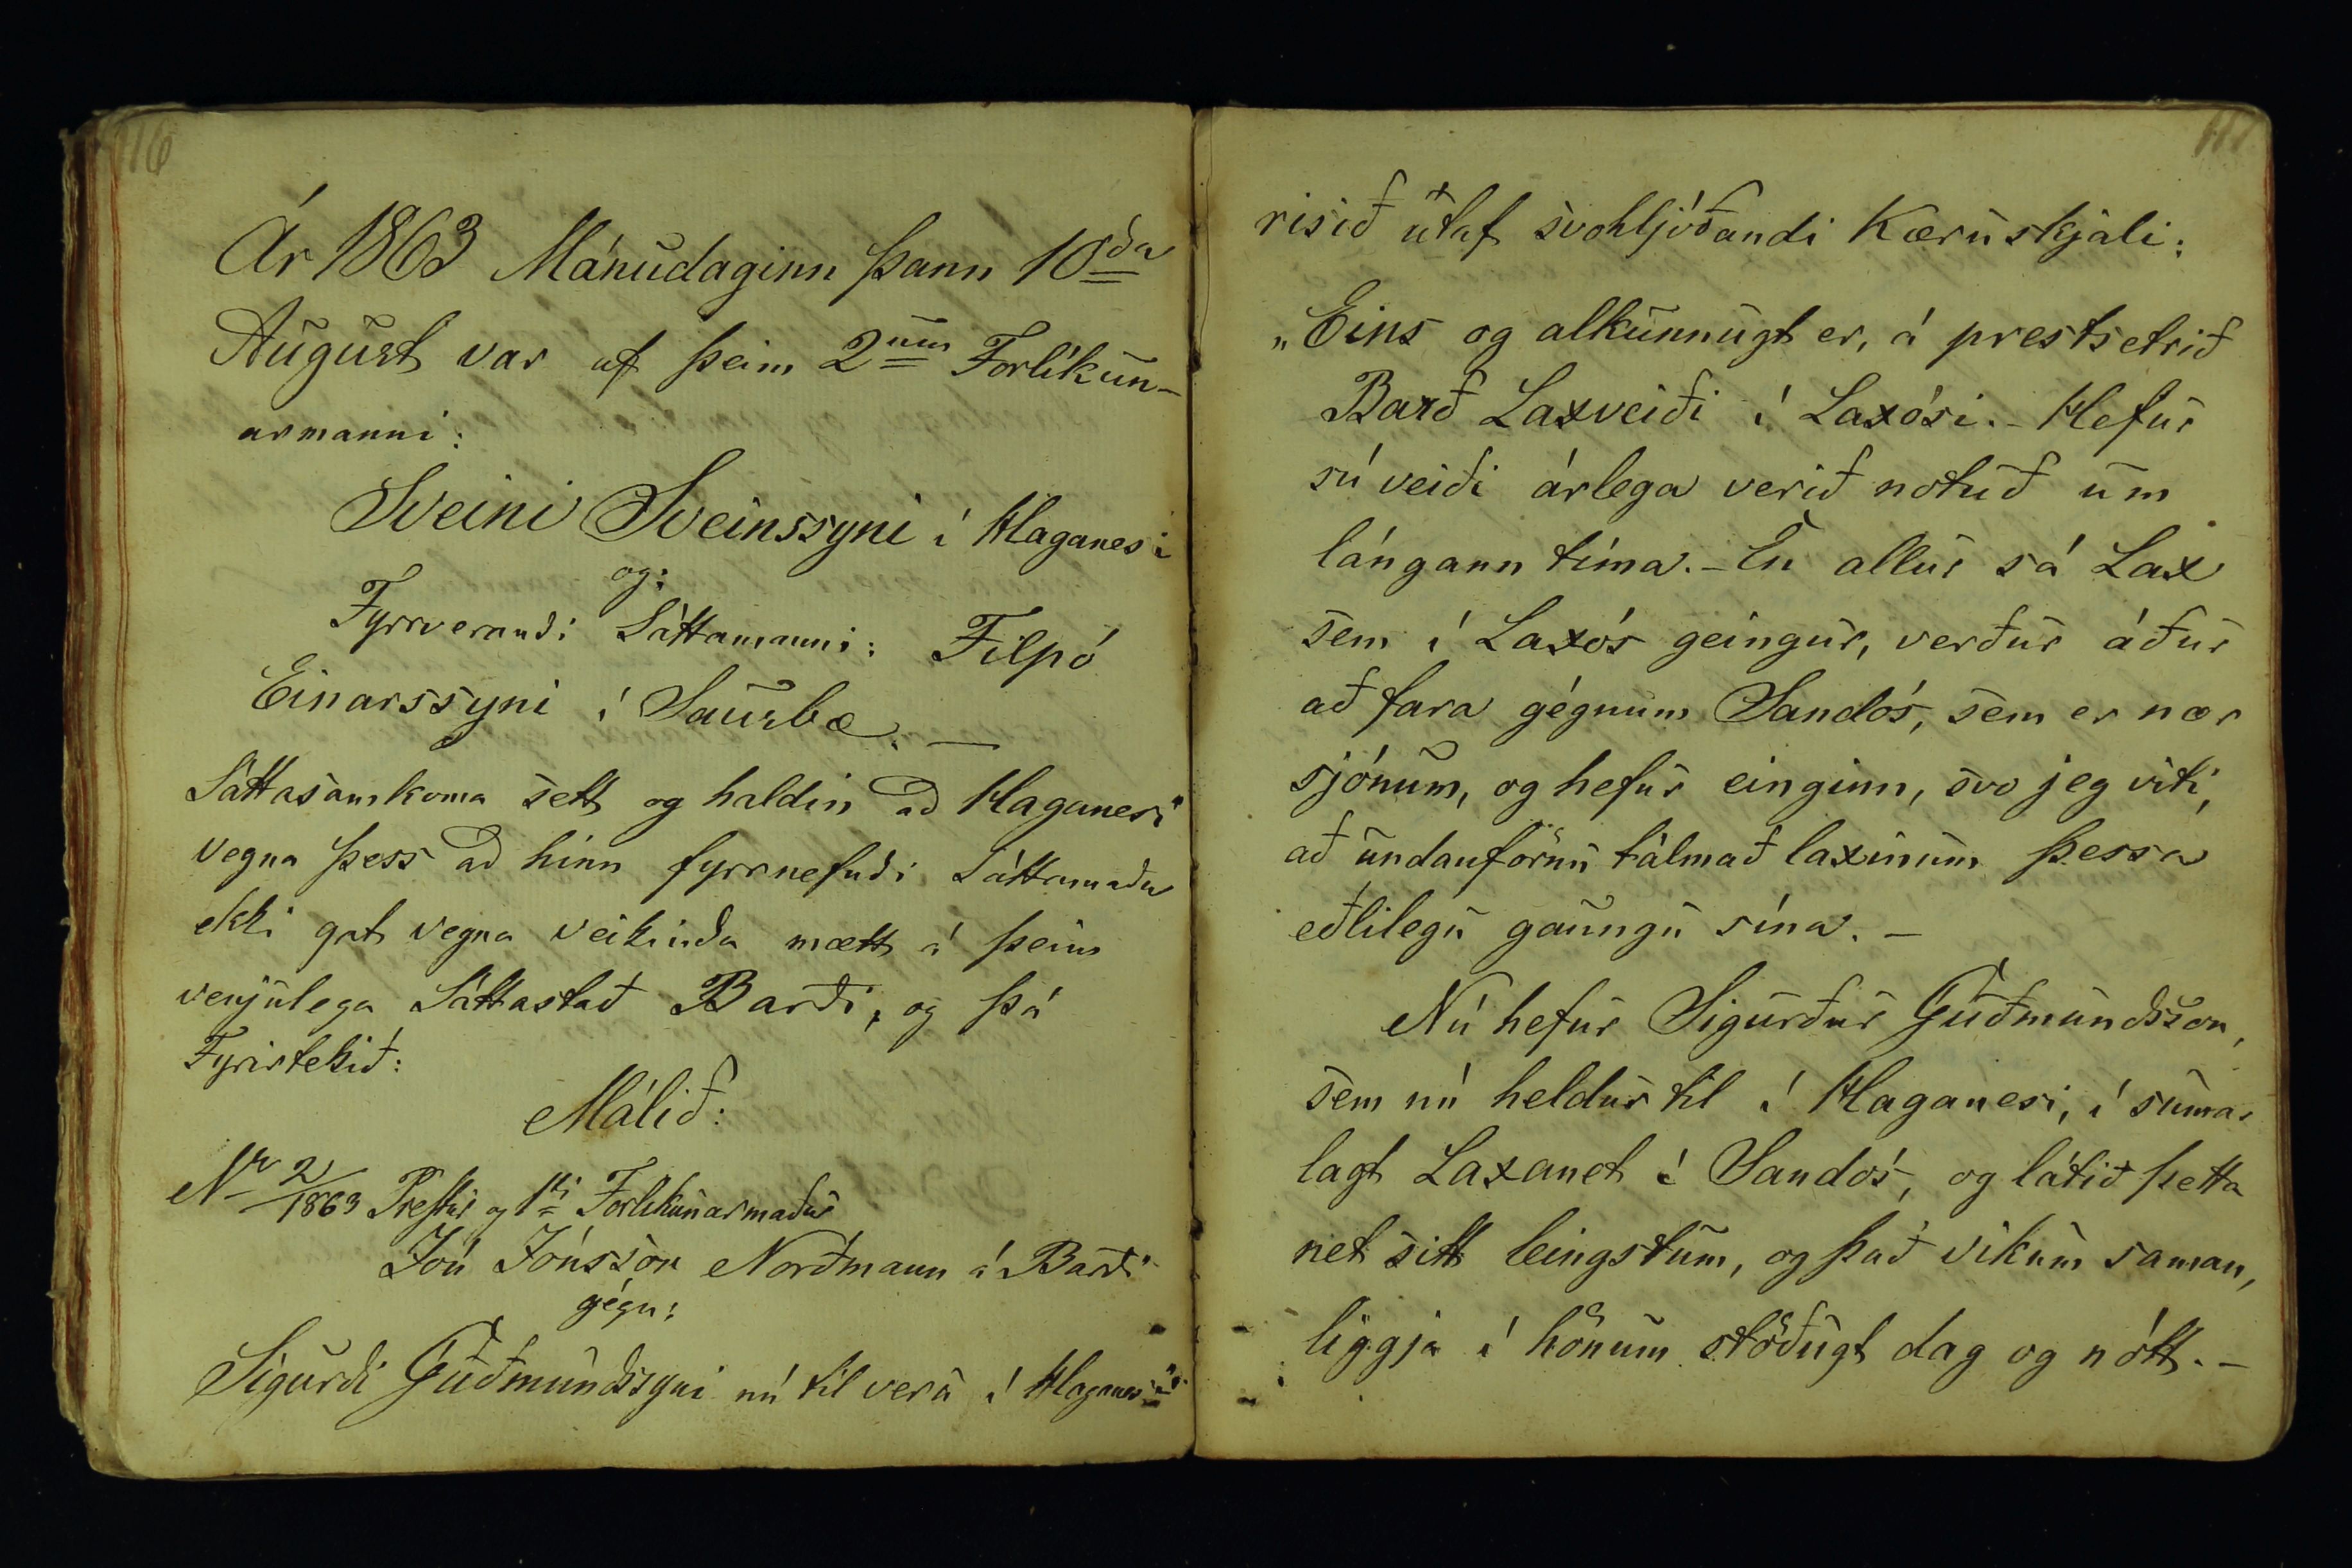 116
Ár 1863 Mánudaginn þann 10da
August var af þeim 2um Forlíkun-
armanni:
Sveini Sveinssyni í Haganesi
og:
Fyrrverandi Sáttamanni: Filpó
Einarssyni í Saurbæ. —
Sáttasamkoma sett og haldin að Haganesi
vegna þess að hinn fyrrnefndi Sáttamaður
ekki gat vegna veikinda mætt á þeim
venjulega Sáttastað Barði, og þá
Fyrirtekið:
Málið:
Nr 2/1863 Prestur og 1ti Forlíkunarmaður
Jón Jónsson Norðmann á Barði
gégn:
Sigurði Guðmundssyni nú til veru í Haganesi
117
risið útaf svohljóðandi Kæruskjali:
„Eins og alkunnugt er, á prestsetrið
Barð Laxveiði í Laxósi. - Hefur
sú veiði árlega verið notuð um
lángann tíma. - En allur sá Lax
sem í Laxós geingur, verður áður
að fara gégnum Sandós, sem er nær
sjónum, og hefur einginn, svo jeg viti,
að undanförnu tálmað laxinum þessa
eðlilegu gaungu sína. —
Nú hefur Sigurður Guðmundsson,
sem nú heldur til í Haganesi, í sumar
lagt Laxanet í Sandós, og látið þetta
net sitt leingstum, og það vikum saman,
liggja í hönum stöðugt dag og nótt. —